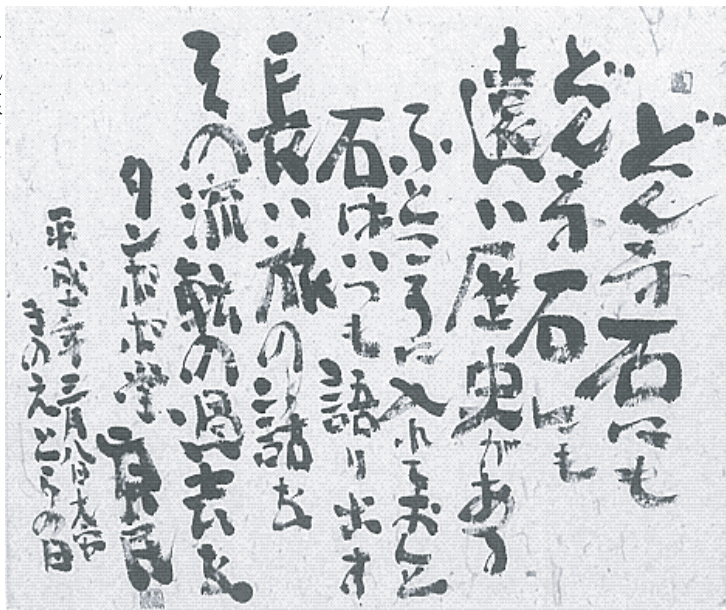 どんな石にも
どんな石にも
遠い歴史がある
ふところに入れておくと
石はいつも語り出す
長い旅の話を
その流転の過去を
タンポポ堂 真民
平成十年三月八日大安
きのえとらの日